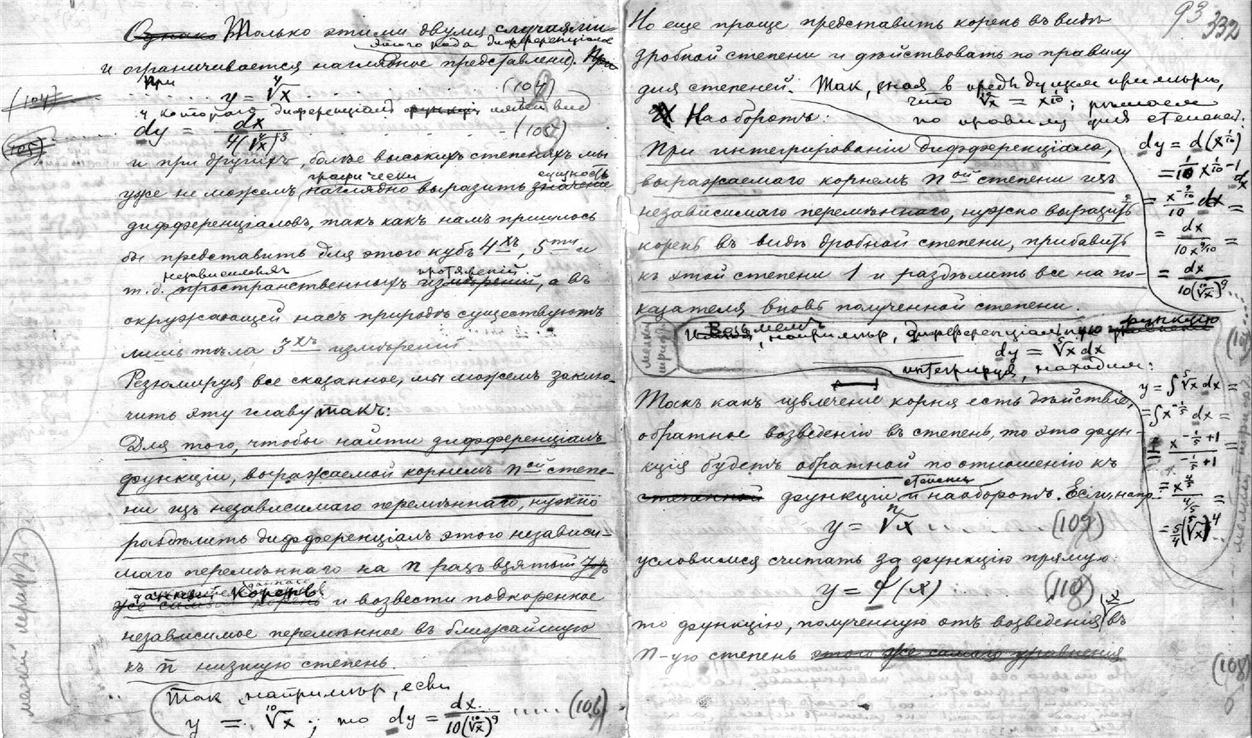 Однако Только этими двумя случаями
этого рода дифференціалов
и ограничивается наглядное представлен. При
При
(104)
y = ∜x (104)
у которой дифференціалъ функціи имѣетъ вид
(105)
dy = dx / 4(∜x)³ - (105)
и при другихъ, болѣе высокихъ степеняхъ мы
графически сущность
уже не можемъ наглядно выразить значение
дифференціаловъ, такъ какъ намъ пришлось
бы представить для этого кубъ 4хъ, 5ти и
независимыхъ протяженій
т.д. пространственныхъ измѣреній, а въ
окружающей насъ природѣ существуютъ
лишь тѣла 3хъ измѣреній
Резюмируя все сказанное, мы можемъ заклю-
чить эту главу такъ:
Для того, чтобы найти дифференціалъ
функціи, выражаемой корнемъ nой степе-
ни изъ независимаго перемѣннаго, нужно
раздѣлить дифференціалъ этого независи-
маго перемѣннаго на n разъ взятый
данный корень
и возвести подкоренное
независимое перемѣнное въ ближайшую
къ n низшую степень.
Такъ, напримѣр, если
y = ¹⁰√x ; то dy = dx / 10(¹⁰√x)⁹ ..... (106)
93 332
Но еще проще представить корень въ видѣ
дробной степени и дѣйствовать по правилу
для степеней. Такъ, зная, в предъидущем примѣрѣ,
что ¹⁰√x = x^1/10; рѣшаем
по правилу для степеней.
Наоборотъ:
dy = d(x^1/10)
При интегрированіи дифференціала,
= 1/10 x^1/10-1 dx
выражаемаго корнемъ nой степени изъ
= x^-9/10 / 10 dx =
независимаго перемѣннаго, нужно выразить
корень въ видѣ дробной степени, прибавить
= dx / 10x^9/10
къ этой степени 1 и раздѣлить все на по-
= dx / 10(¹⁰√x)⁹
казателя вновь полученной степени
мелкій шрифт
Возьмемъ функцію
напримѣр, дифференціальную
dy = ⁵√x dx
интегрируя, находим:
y = ∫⁵√x dx =
Такъ какъ извлеченіе корня есть дѣйствіе,
= ∫x^-1/5 dx =
обратное возведенію въ степень, то эта функ-
= x^-1/5+1 / -1/5+1
ція будетъ обратной по отношенію къ
степени
степенной функціи и наоборотъ. Если, напр.
= x^4/5 / 4/5 =
y = ⁿ√x (109)
= 5/4(⁵√x)⁴
условимся считать за функцію прямую:
y = φ(x) (110)
то функцію, полученную отъ возведенія x въ
n-ую степень этого же самаго уравненія
(108)